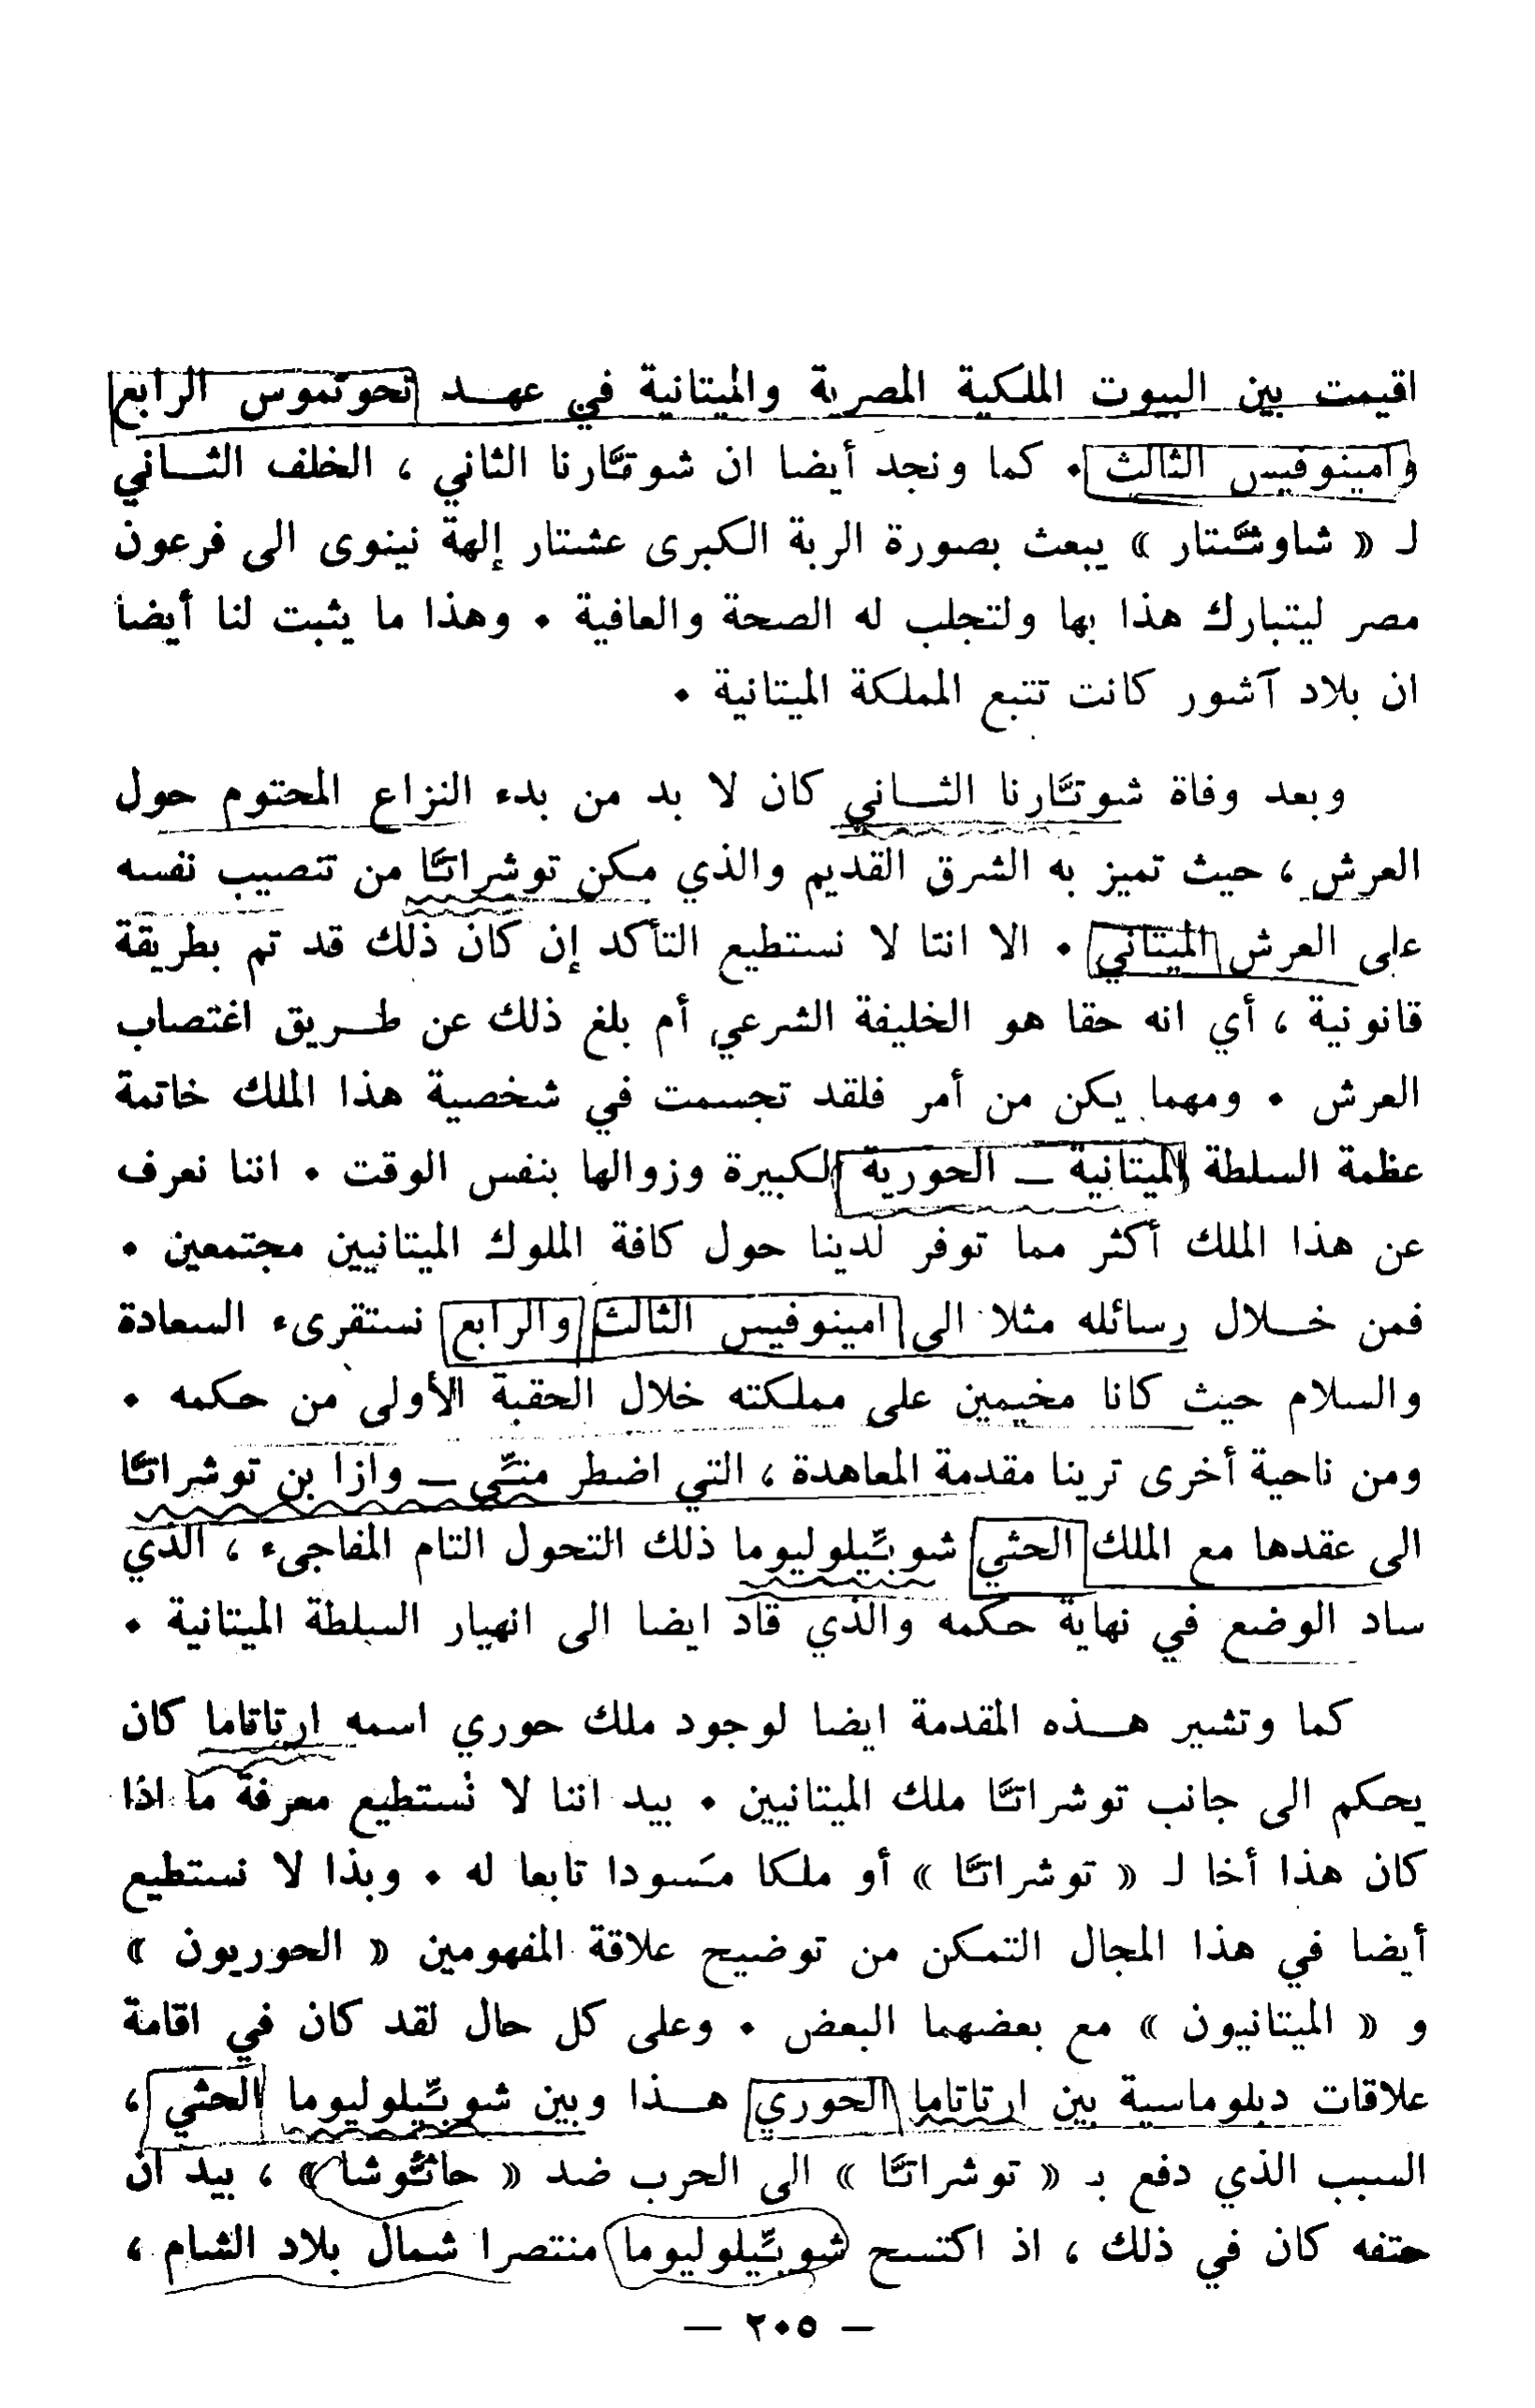 اقيمت بين البيوت الملكية المصرية والميتانية في عهـــد تحوتموس الرابع
وامينوفيس الثالث . كما ونجد أيضا ان شوتّارنا الثاني ، الخلف الثـــاني
لـ « شاوشتّتار » يبعث بصورة الربة الكبرى عشتار إلهة نينوى الى فرعون
مصر ليتبارك هذا بها ولتجلب له الصحة والعافية . وهذا ما يثبت لنا أيضا
ان بلاد آشور كانت تتبع المملكة الميتانية .
وبعد وفاة شوتّارنا الثـــاني كان لا بد من بدء النزاع المحتوم حول
العرش ، حيث تميز به الشرق القديم والذي مكن توشراتّا من تنصيب نفسه
على العرش الميتاني . الا اننا لا نستطيع التأكد إن كان ذلك قد تم بطريقة
قانونية ، أي انه حقا هو الخليفة الشرعي أم بلغ ذلك عن طـــريق اغتصاب
العرش . ومهما يكن من أمر فلقد تجسمت في شخصية هذا الملك خاتمة
عظمة السلطة الميتانية ــ الحورية الكبيرة وزوالها بنفس الوقت . اننا نعرف
عن هذا الملك أكثر مما توفر لدينا حول كافة الملوك الميتانيين مجتمعين .
فمن خـــلال رسائله مثلا الى امينوفيس الثالث والرابع نستقرىء السعادة
والسلام حيث كانا مخيمين على مملكته خلال الحقبة الأولى من حكمه .
ومن ناحية أخرى ترينا مقدمة المعاهدة ، التي اضطر متّي ــ وازا بن توشراتّا
الى عقدها مع الملك الحثي شوبّيلوليوما ذلك التحول التام المفاجىء ، الذي
ساد الوضع في نهاية حكمه والذي قاد ايضا الى انهيار السلطة الميتانية .
كما وتشير هـــذه المقدمة ايضا لوجود ملك حوري اسمه ارتاتاما كان
يحكم الى جانب توشراتّا ملك الميتانيين . بيد اننا لا نستطيع معرفة ما اذا
كان هذا أخا لـ « توشراتّا » أو ملكا مَسودا تابعا له . وبذا لا نستطيع
أيضا في هذا المجال التمكن من توضيح علاقة المفهومين « الحوريون »
و « الميتانيون » مع بعضهما البعض . وعلى كل حال لقد كان في اقامة
علاقات دبلوماسية بين ارتاتاما الحوري هـــذا وبين شوبّيلوليوما الحثي ،
السبب الذي دفع بـ « توشراتّا » الى الحرب ضد « حاتّوشا » ، بيد ان
حتفه كان في ذلك ، اذ اكتسح شوبّيلوليوما منتصرا شمال بلاد الشام ،
— ٢٠٥ —